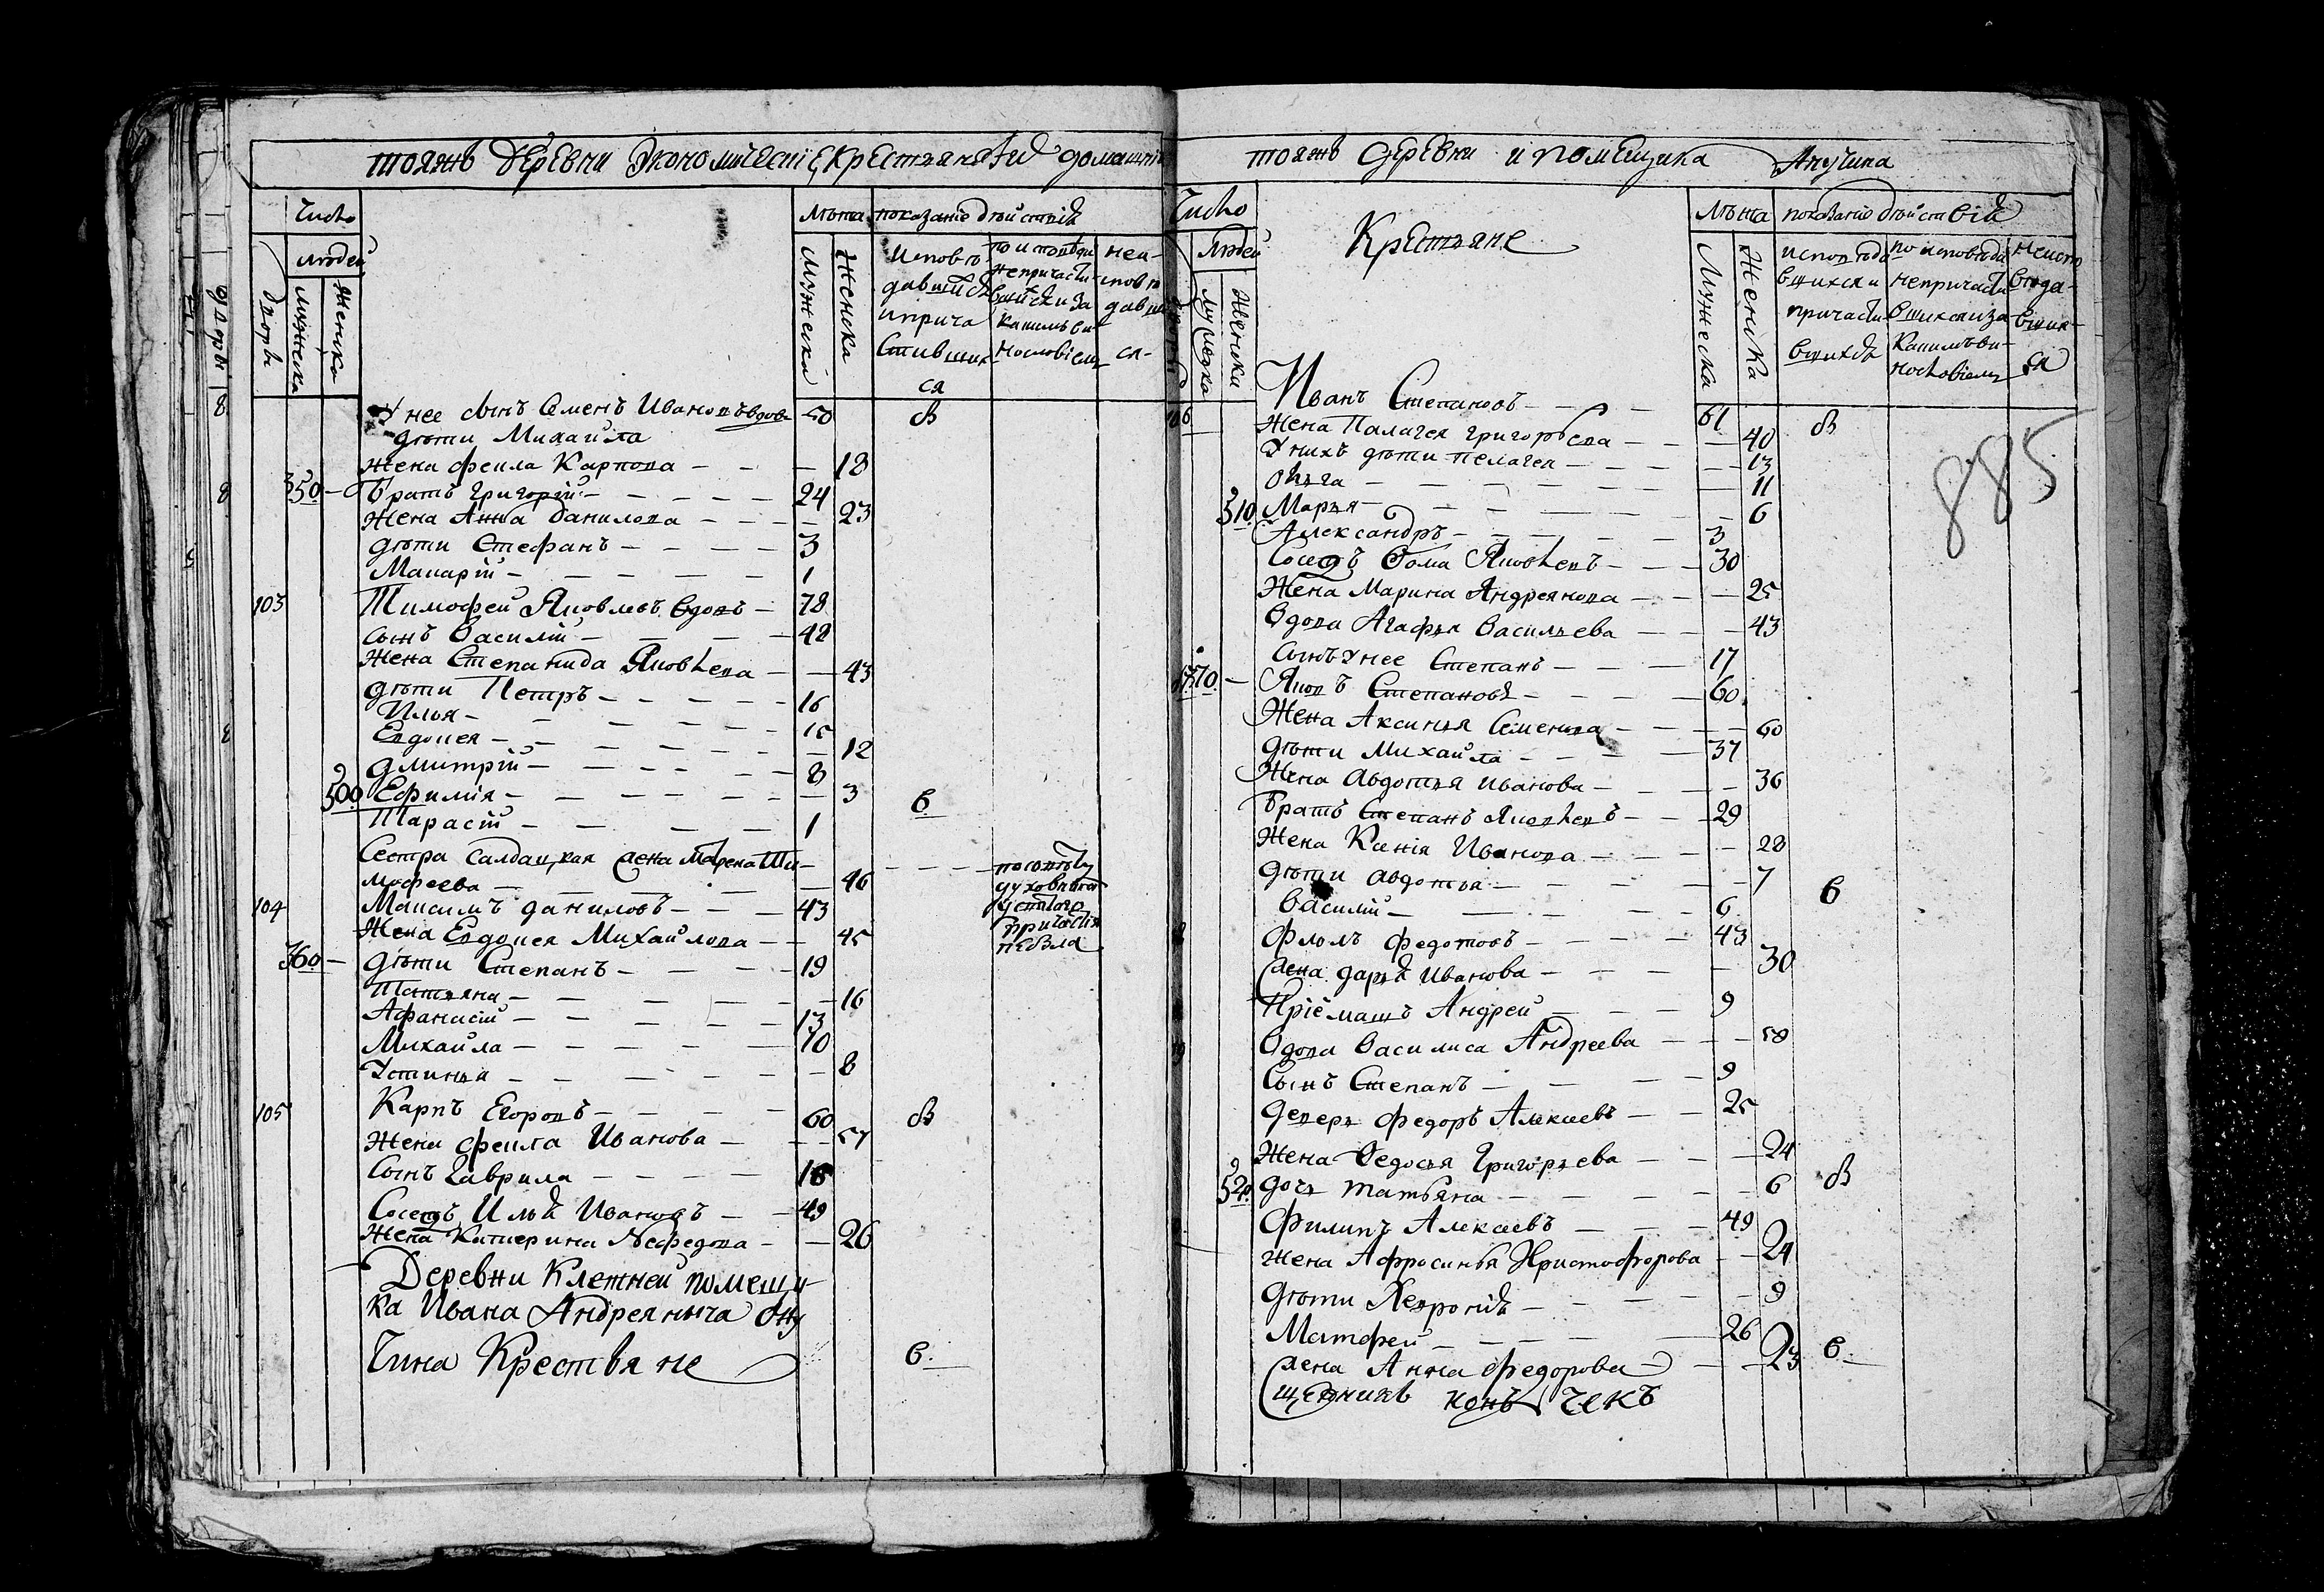 тояжъ деревни Экономическiе крестьяне и домашнiи
Число
Людей
дворы
мужеска
женска
Лѣта
мужеска
женска
показанiе дѣйствiй
исповѣдавшихся и причастившихся
по исповѣди непричастившихся и за какимъ винословiемъ
неисповѣдавшихся
У нее сынъ Семенъ Ивановъ вдовъ 50 в
дѣти Михайла
жена Феила Карпова 18
350 братъ Григорiй 24
жена Анна Данилова 23
дѣти Стефанъ 3
Макарiй 1
103 Тимофей Яковлевъ вдовъ 78
сынъ Василiй 48
жена Степанида Яковлева 43
дѣти Петръ 16
Илья 15
Евдокея 12
Дмитрiй 8
500 Ефимiя 3 в
Тарасiй 1
Сестра салдацкая жена Матрена Ти-
мофеева 46
по совѣту духовника
104 Максимъ Даниловъ 43
жена Евдокея Михайлова 45
360 дѣти Степанъ 19
Татьяна 16
Афанасiй 13
Михайла 10
Устинья 8
105 Карпъ Егоровъ 60 в
жена Феила Иванова 57
сынъ Гаврила 16
Соседъ Илья Ивановъ 49
жена Катерина Нефедова 26
Деревни Клетней помещи
ка Ивана Андреяныча Ану
чина Крестьяне в
тояжъ деревни и помещика Анучина
Число
Людей
мужеска
женска
Крестьяне
Лѣта
мужеска
женска
показанiе дѣйствiй
исповѣдавшихся и причастившихся
по исповѣди непричастившихся и за какимъ винословiемъ
неисповѣдавшихся
885
106 Иванъ Степановъ 61 в
жена Палагея Григорьева 40
У нихъ дѣти Пелагея 13
Ольга 11
510 Марья 6
Александръ 3
Соседъ Фома Яковлевъ 30
жена Марина Андреянова 25
вдова Агафья Васильева 43
сынъ у нее Степанъ 17
370 Яковъ Степановъ 60
жена Аксинья Семенова 60
дѣти Михайла 37
жена Авдотья Иванова 36
братъ Степанъ Яковлевъ 29
жена Ксенiя Иванова 28
дѣти Авдотья 7 в
Василiй 6
Фломъ Федотовъ 43
жена Дарья Иванова 30
Прiемашъ Андрей 9
вдова Василиса Андреева 58
сынъ Степанъ 9
деверь Федоръ Алексеевъ 25
жена Федосья Григорьева 24
520 дочь Татьяна 6 в
Филипъ Алексеевъ 49
жена Афросинья Христофорова 24
дѣти Хевронiя 9
Матфей 26
жена Анна Федорова 23 в